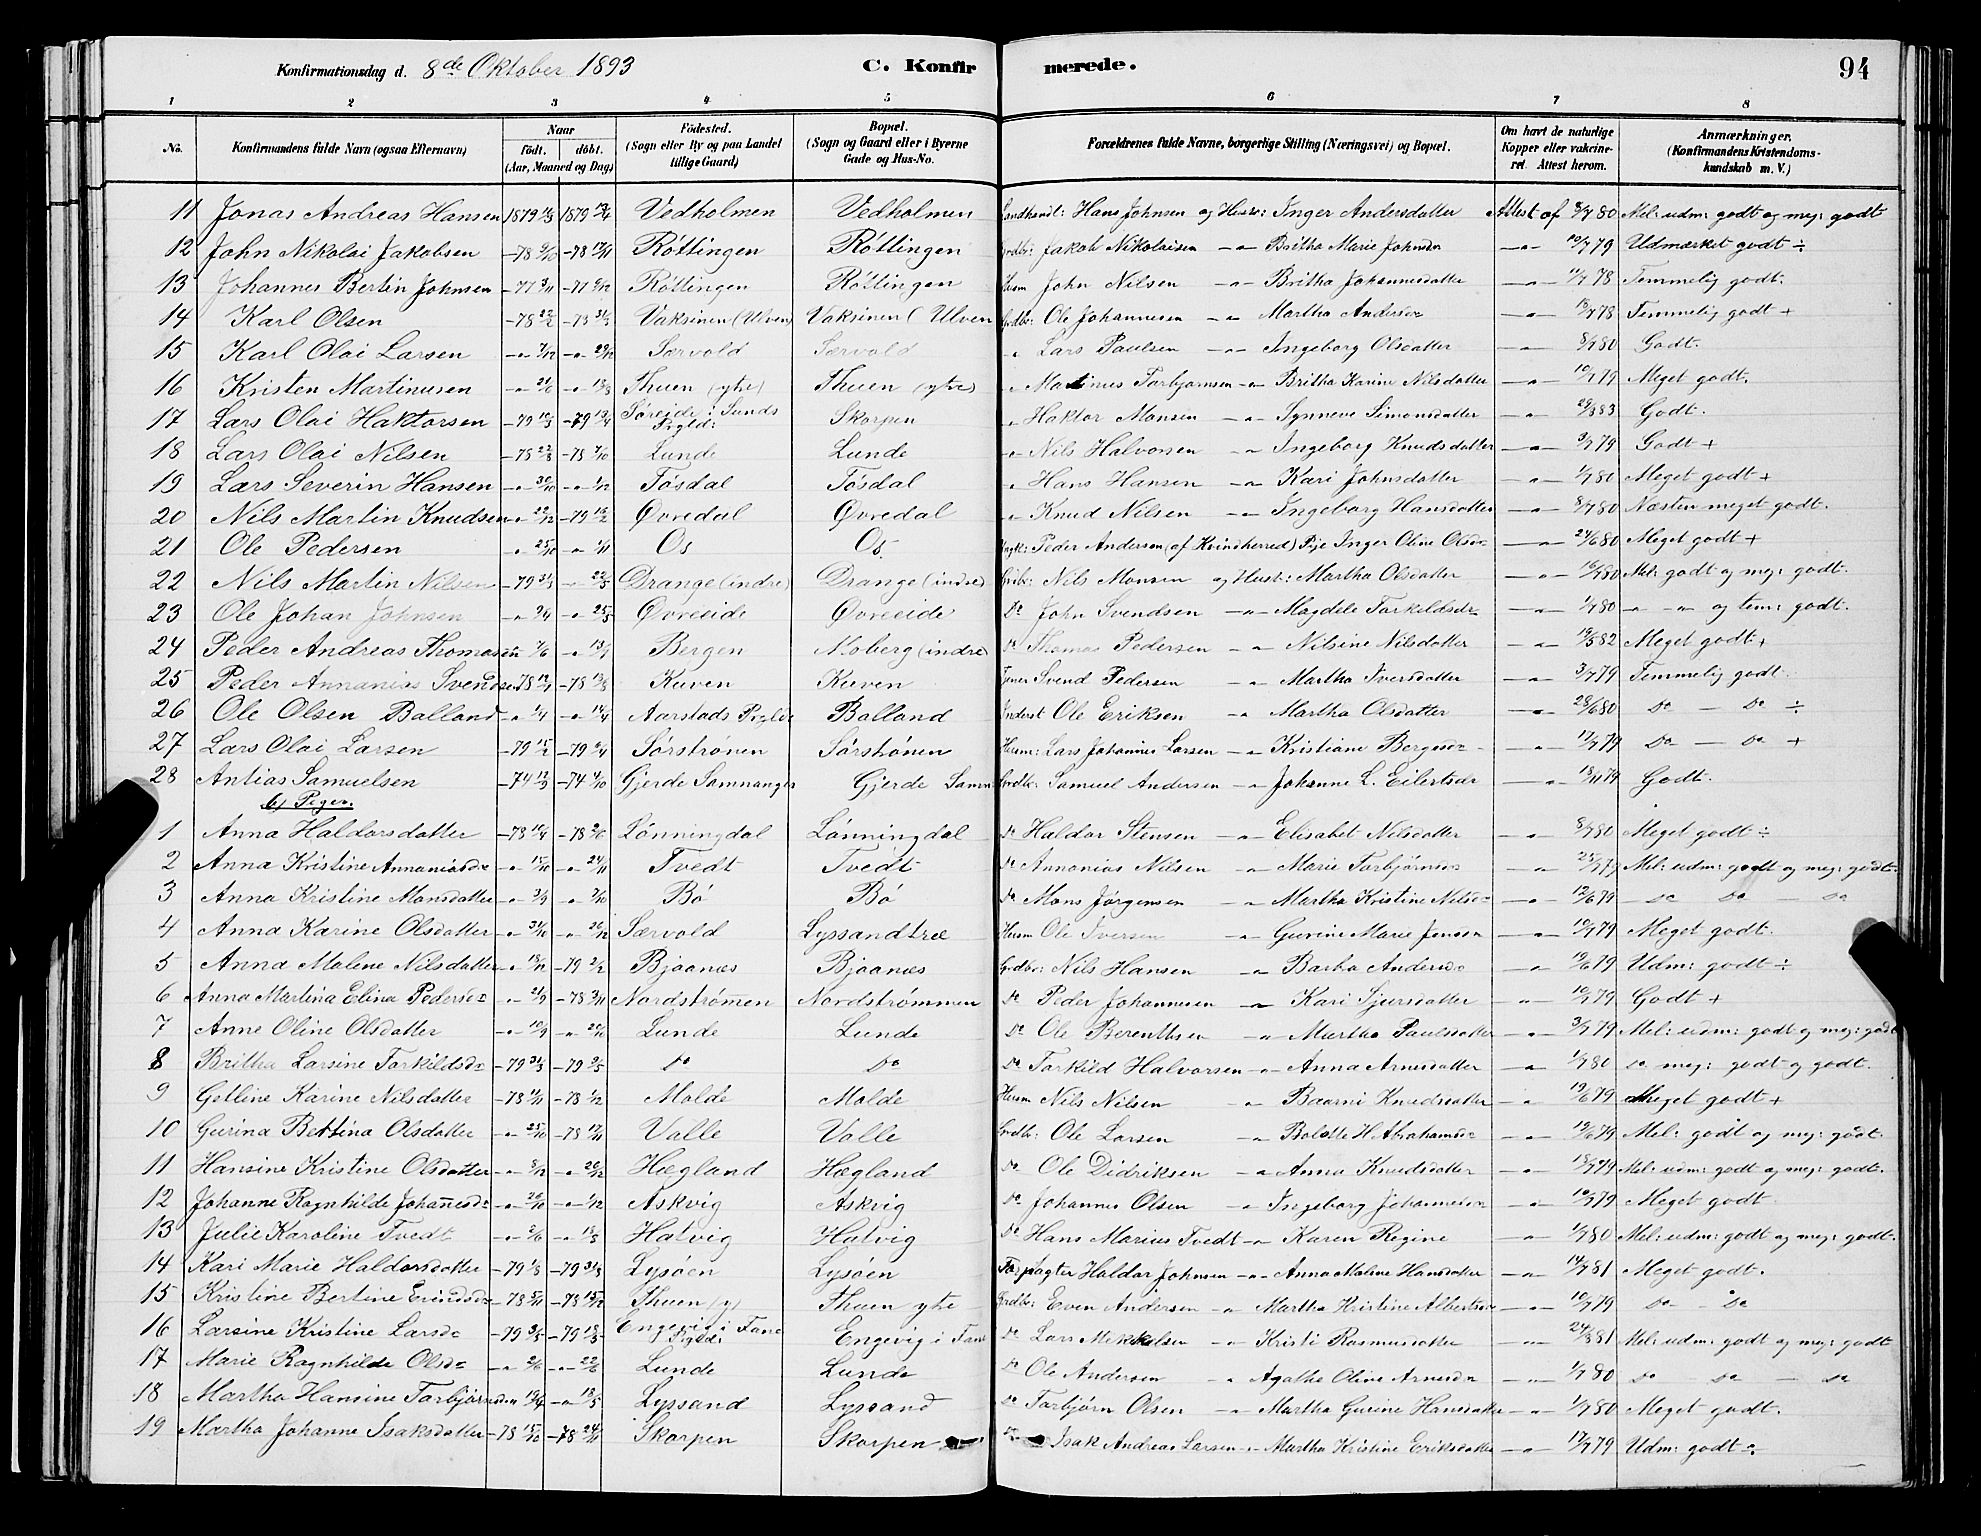 Konfirmationsdag d. 8de Oktober 1893 C. Konfirmerede. 94
1 2 3 4 5 6 7 8
No. Konfirmandens fulde Navn (ogsaa Efternavn) Naar født. døbt. (Aar, Maaned og Dag) Fødested. (Sogn eller By og paa Landet tillige Gaard) Bopæl. (Sogn og Gaard eller i Byerne Gade og Hus-No. Forældrenes fulde Navne, borgerlige Stilling (Næringsvei) og Bopæl. Om havt de naturlige Kopper eller vakcineret. Attest herom. Anmærkninger. (Konfirmandens Kristendomskundskab m. V.)
11 Jonas Andreas Hansen 1879 1879 Vedholmen Vedholmen Landhandl: Hans Johnsen og Hustr: Inger Andersdatter Attest af 8/7 80 Mel: udm: godt og meg: godt
12 John Nikolai Jakobsen -78 9/10 -78 17/11 Røttingen Røttingen Grdbr: Jakob Nikolaisen -"- Britha Marie Johnsdr -"- 10/7 79 Udmærket godt ÷
13 Johannes Bertin Johnsen -77 3/11 -77 9/12 Røttingen Røttingen Husm John Nilsen -"- Britha Johannesdatter -"- 11/7 78 Temmelig godt.
14 Karl Olsen -78 22/2 -78 31/3 Vaksinen (Ulven) Vaksinen (Ulven Grdbr: Ole Johannesen -"- Martha Andersdr -"- Temmelig godt +
15 Karl Olai Larsen -"- 7/12 -"- 29/12 Særvold Særvold -"- Lars Paulsen -"- Ingeborg Olsdatter -"- 8/7 80 Godt.
16 Kristen Martinusen -"- 21/6 -"- Thuen (ytre) Thuen (ytre) -"- Martinus Torbjørnsen -"- Britha Karine Nilsdatter -"- 10/7 79 Meget godt.
17 Lars Olai Haktorsen -79 10/3 -79 13/4 Søreide i Sunds Prgld: Skorpen -"- Haktor Monsen -"- Synneve Simonsdatter -"- 29/8 83 Godt.
18 Lars Olai Nilsen -78 22/8 -78 7/10 Lunde Lunde -"- Nils Halvorsen -"- Ingeborg Knudsdatter -"- 3/7 79 Godt +
19 Lars Severin Hansen -"- 30/10 -"- 1/12 Tøsdal Tøsdal -"- Hans Hansen -"- Kari Johnsdatter -"- 1/7 80 Meget godt +
20 Nils Martin Knudsen -"- 29/12 -79 16/2 Øvredal Øvredal -"- Knud Nilsen -"- Ingeborg Hansdatter -"- 8/7 80 Næsten meget godt.
21 Ole Pedersen -"- 25/10 -"- 1/11 Os Os. Ungk: Peder Andersen (af Kvindherred) Pige Inger Oline Olsdr -"- 24/6 80 Meget godt +
22 Nils Martin Nilsen -79 31/3 -"- 22/5 Drange (indre) Drange (indre) Grdbr: Nils Monsen og Hust: Martha Olsdatter -"- 16/7 80 Mel: godt og meg: godt.
23 Ole Johan Johnsen -"- 2/4 -"- 25/5 Øvreeide Øvreeide Do John Svendsen -"- Magdele Torkildsdr -"- 1/7 80 -"- -"- og tem: godt.
24 Peder Andreas Thomasen -"- 7/6 -"- 13/7 Bergen Moberg (indre) Do Thomas Pedersen -"- Nilsine Nilsdatter -"- 19/8 82 Meget godt +
25 Peder Annanias Svendsen -78 -78 Kuven Kuven Svend Pedersen -"- Martha Iversdatter -"- 3/7 79 Temmelig godt.
26 Ole Olsen Balland -"- 1/4 -"- 14/4 Aarstads Prgld: Balland Inderst Ole Eriksen -"- Martha Olsdatter -"- 28/6 80 Do - Do ÷
27 Lars Olai Larsen -79 15/2 -79 6/4 Sørstrønen Sørstrønen Husm: Lars Johannes Larsen -"- Kristiane Bergesdr -"- 17/7 79 Do - Do +
28 Antias Samuelsen -74 13/9 -74 4/10 Gjerde Samnanger Gjerde Samn Grdbr: Samuel Andersen -"- Johanne L. Eilertsdr -"- 13/11 79 Godt.
b) Piger.
1 Anna Haldorsdatter -78 -78 Lønningdal Lønningdal Do Haldor Stensen -"- Elisabet Nilsdatter -"- 8/7 80 Meget godt ÷
2 Anna Kristine Annaniasdr -"- 15/10 -"- 24/11 Tvedt Tvedt Do Annanias Nilsen -"- Marie Torbjørnsdr -"- 25/7 79 Mel: udm: godt og meg: godt.
3 Anna Kristine Monsdatter -"- 3/9 -"- 7/10 Bø Bø Do Mons Jørgensen -"- Martha Kristine Nilsdr -"- 12/6 79 - Do Do - Do
4 Anna Karine Olsdatter -"- 31/10 -"- 26/12 Særvold Lyssandtræ Husm Ole Iversen -"- Gurine Marie Jensdr -"- 10/7 79 Meget godt.
5 Anna Malene Nilsdatter -"- 18/12 -79 2/2 Bjaanæs Bjaanæs Grdbr: Nils Hansen -"- Barba Andersdr -"- 19/6 79 Udm: godt ÷
6 Anna Martina Elina Pedersdr -"- 21/9 -78 3/11 Nordstrømen Nordstrømmen Do Peder Johannesen -"- Kari Sjursdatter -"- 10/7 79 Godt +
7 Anne Oline Olsdatter -"- 10/9 -"- 20/10 Lunde Lunde Do Ole Berenthsen -"- Martha Paulsdatter -"- 3/7 79 Mel: udm: godt og meg: godt
8 Britha Larsine Torkildsdr -79 31/3 -79 2/5 Do Do Do Torkild Halvorsen -"- Anna Arnesdatter -"- 1/7 80 Do meg: godt og godt.
9 Getline Karine Nilsdatter -78 11/11 -78 1/12 Molde Molde Husm Nils Nilsen -"- Baarni Knudsdatter -"- 19/6 79 Meget godt +
10 Gurina Bettina Olsdatter -"- 25/10 -78 17/11 Valle Valle Grdbr: Ole Larsen -"- Bolette H. Abrahamsdr -"- 19/6 79 Mel: godt og meg: godt.
11 Hansine Kristine Olsdatter -"- 8/12 -"- 26/12 Hægland Hægland Do Ole Didriksen -"- Anna Knudsdatter -"- Mel: udm: godt og meg: godt.
12 Johanne Ragnhilde Johanesdr -"- 26/10 -"- 1/12 Askvig Askvig Do Johannes Olsen -"- Ingeborg Johannesdr -"- 10/7 79 Meget godt
13 Julie Karoline Tvedt -"- 2/6 -"- Hatvig Hatvig Do Hans Marius Tvedt -"- Karen Regine -"- 1/7 80 Mel: udm: godt og meg: godt.
14 Kari Marie Haldorsdatter -79 -79 Lysøen Lysøen Forpagter Haldor Johnsen -"- Anna Malene Hansdatter -"- 14/7 81 Meget godt.
15 Kristine Bertine Evindsdr -78 5/11 -78 15/12 Thuen (y) Thuen ytre Grdbr: Even Andersen -"- Martha Kristine Albertsdr -"- 10/7 79 Do - Do
16 Larsine Kristine Larsdr -79 3/5 -79 18/5 Engevig i Fane Prgld: Engevig i Fane Do Lars Mikkelsen -"- Kristi Rasmusdatter -"- 24/8 81 Mel: udm: godt og meg: godt
17 Marie Ragnhilde Olsdr -"- 2/6 -"- 22/6 Lunde Lunde Do Ole Andersen -"- Agatha Oline Arnesdr -"- 1/7 80 Do Do - Do
18 Martha Hansine Torbjørnsdr -"- 19/4 -"- 18/5 Lyssand Lyssand Do Torbjørn Olsen -"- Martha Gurine Hansdatter -"- 1/7 80 Meget godt.
19 Martha Johanne Isaksdatter -78 15/10 -78 24/11 Skorpen Skorpen Do Isak Andreas Larsen -"- Martha Kristine Eriksdatter -"- 17/7 79 Udm: godt ÷